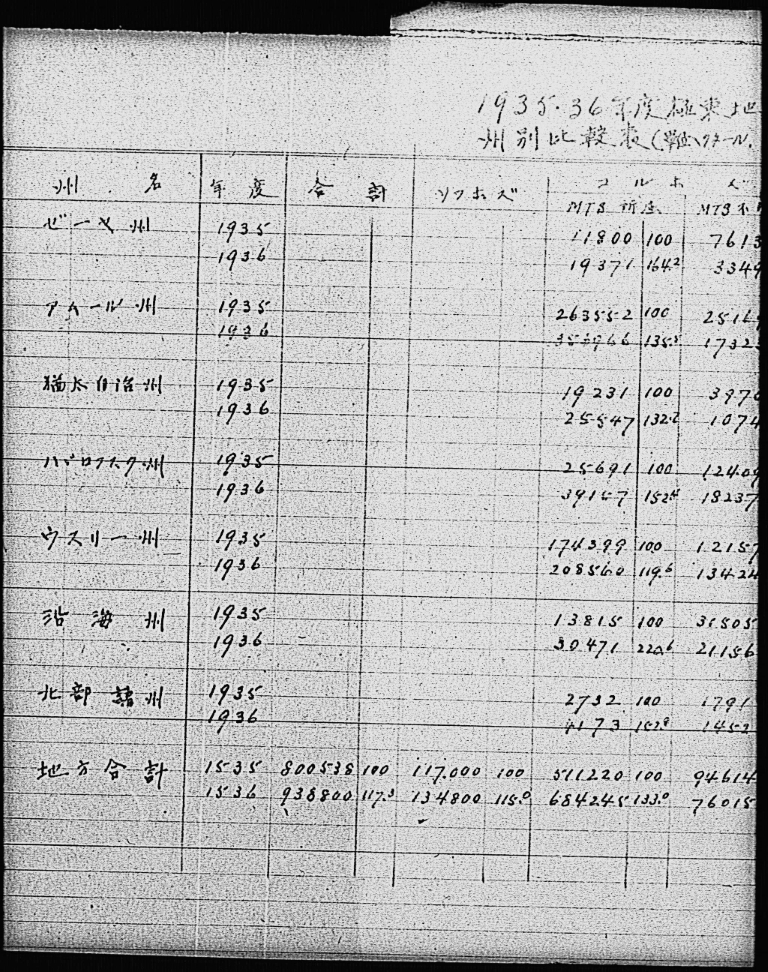 1935.36年度極東地
州別比較表(單位ヘクタール
州名 年度 合計 ソフホズ コルホズ
MTS所屬 MTS不
ゼーヤ州 1935 11800 100 7613
1936 19371 164.2 3349
アムール州 1935 263552 100 2516
1936 135.5 1732
猶太自治州 1935 19231 100 397
1936 25547 132.2 1074
ハバロフスク州 1935 25691 100 1240
1936 39157 152.4 18237
ウスリー州 1935 174399 100 1215
1936 208560 119.6 13424
沿海州 1935 13815 100 31505
1936 30471 220.6 21156
北部諸州 1935 2732 100 1791
1936 4173 152.8 1452
地方合計 1535 800538 100 117.000 100 511220 100 94614
1536 938800 117.3 134800 115.0 684245 133.0 76015